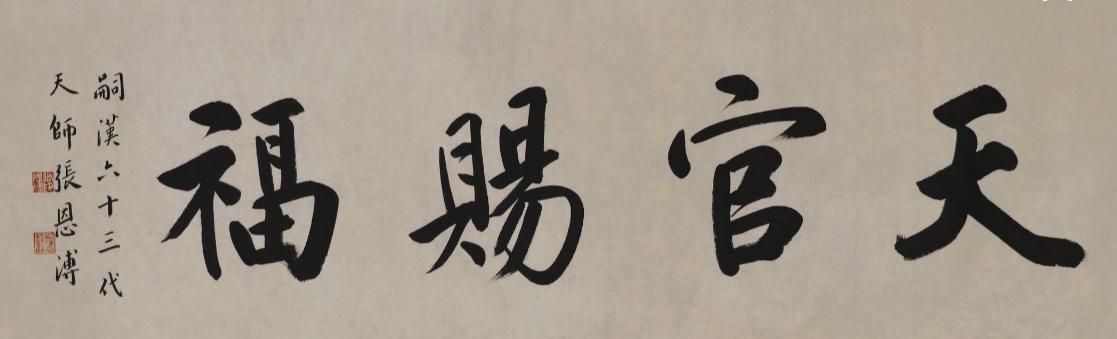 天官賜福
嗣漢六十三代
天師張恩溥